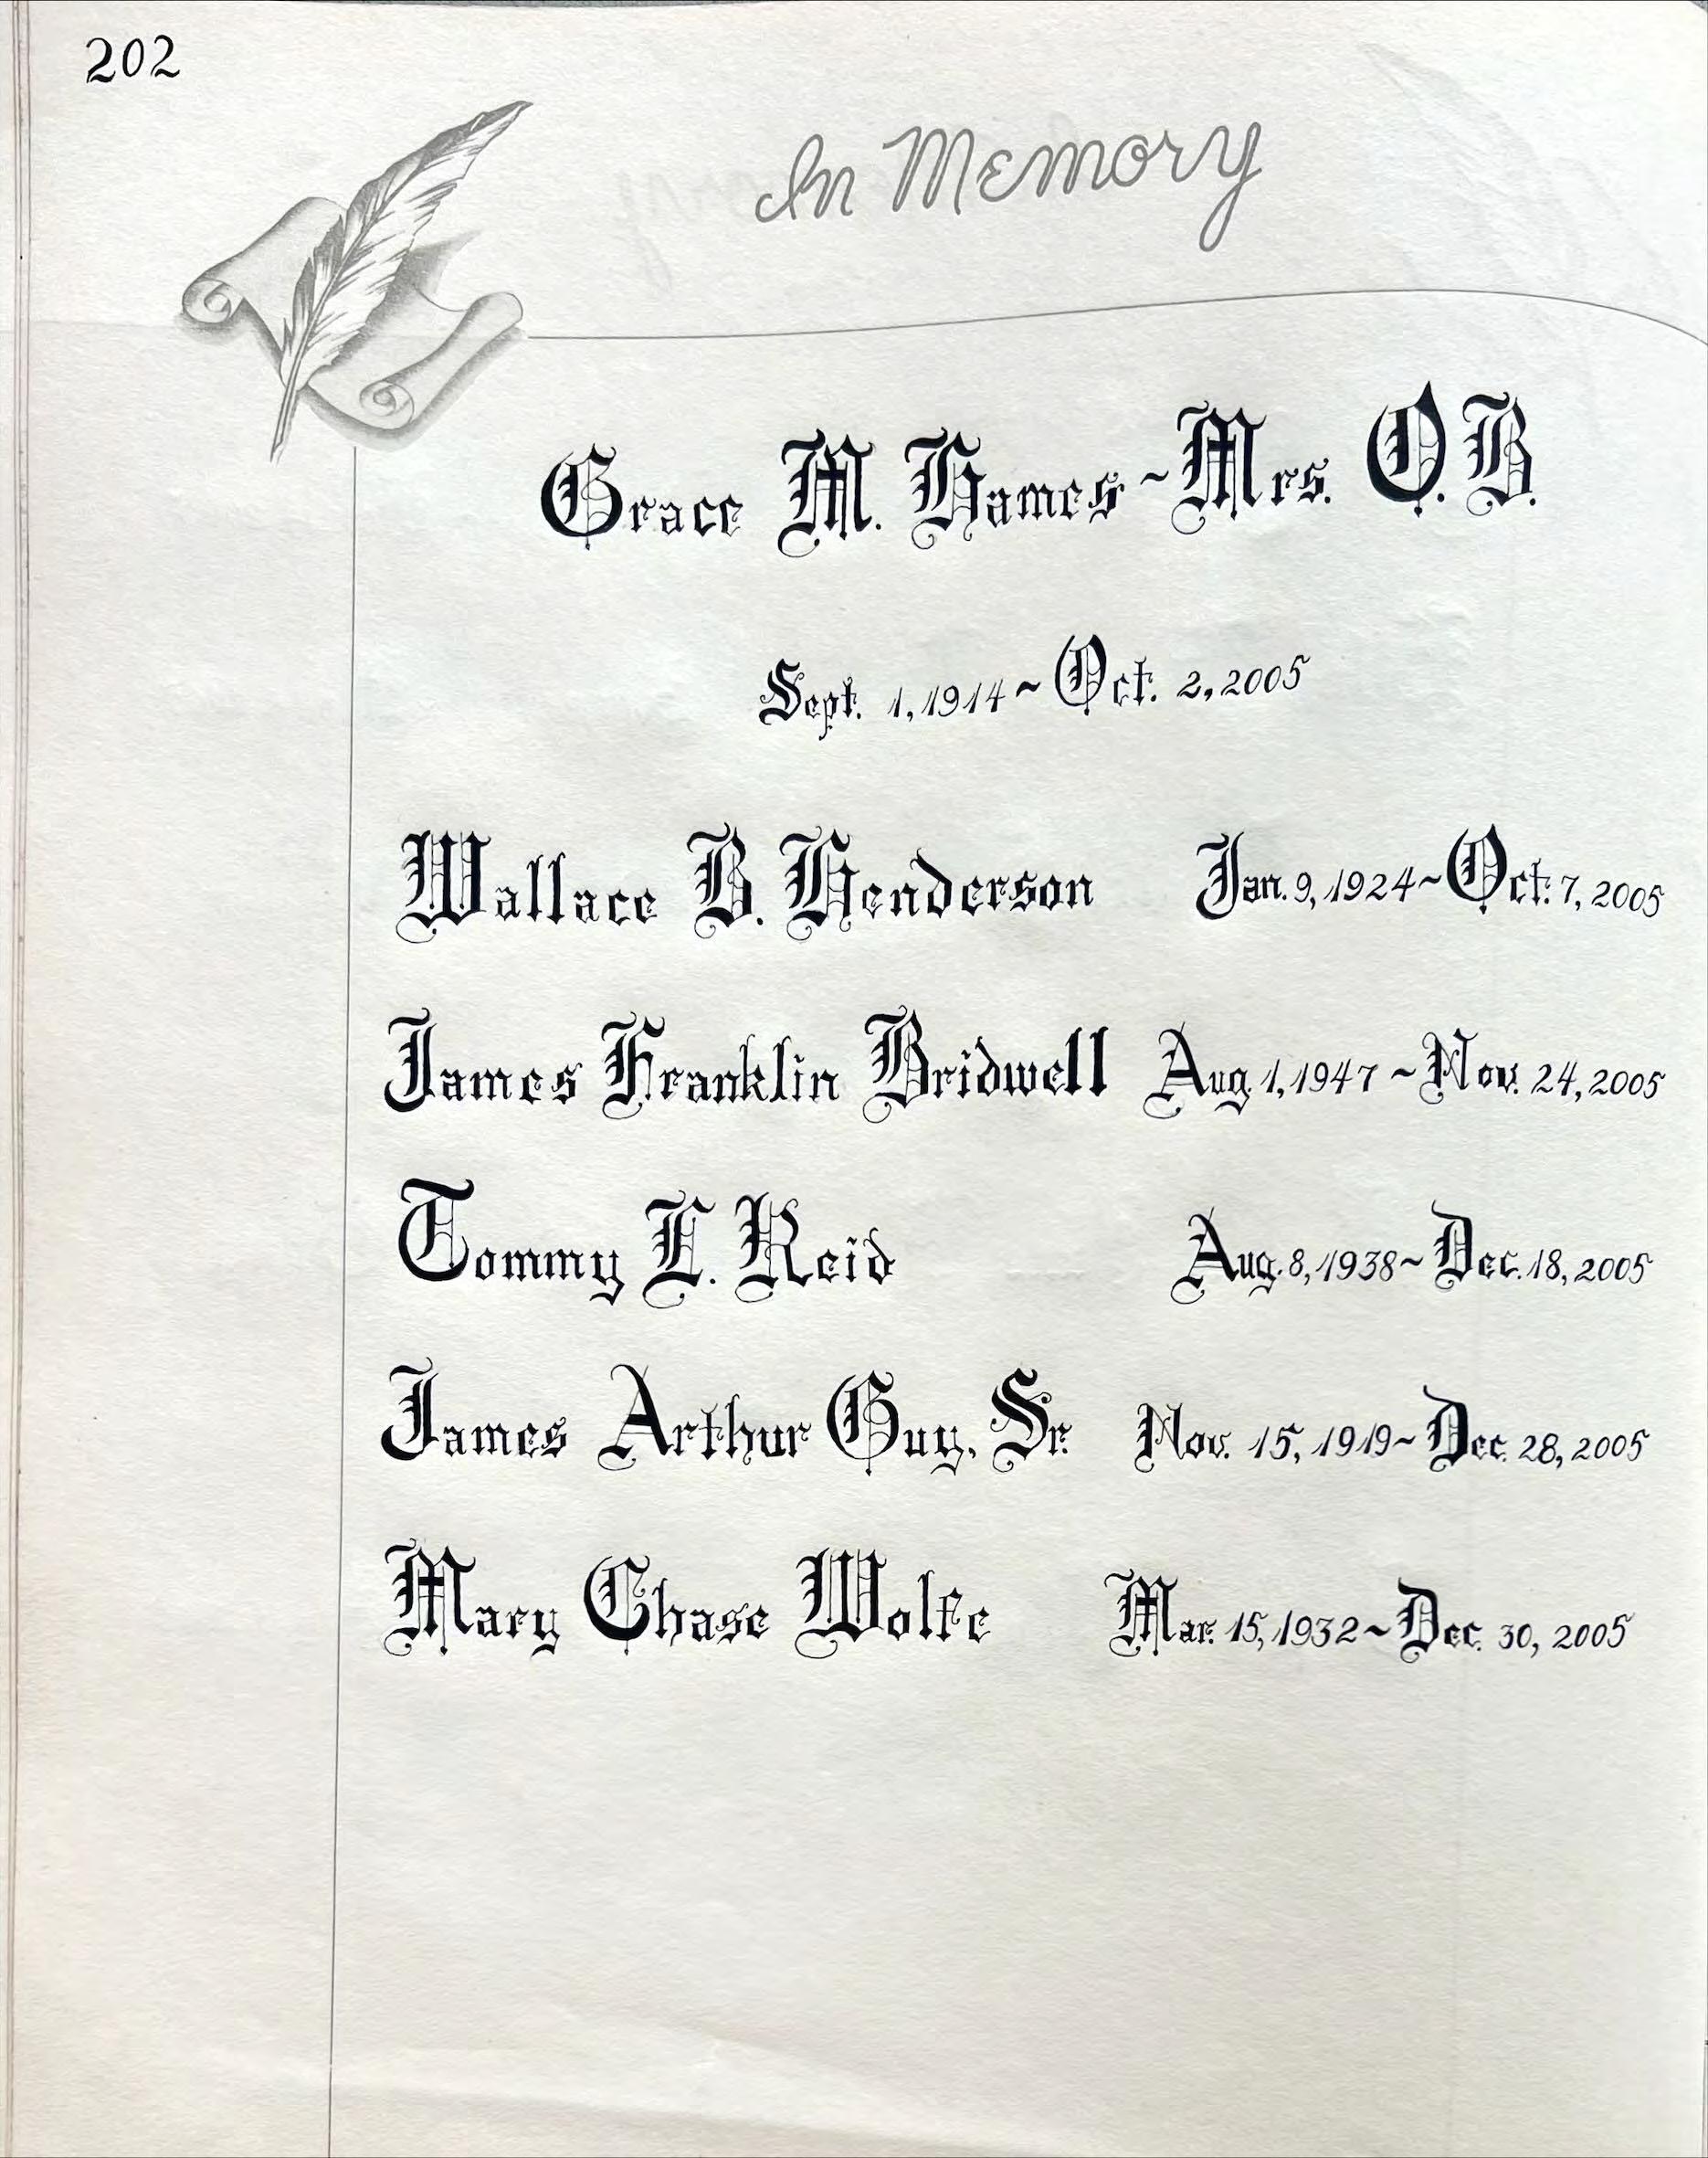 202
In Memory
Grace M. Hames ~ Mrs. O. B.
Sept. 1, 1914 ~ Oct. 2, 2005
Wallace B. Henderson Jan. 9, 1924 ~ Oct. 7, 2005
James Franklin Bridwell Aug. 1, 1947 ~ Nov. 24, 2005
Tommy L. Reid Aug. 8, 1938 ~ Dec. 18, 2005
James Arthur Guy, Sr. Nov. 15, 1919 ~ Dec. 28, 2005
Mary Chase Wolfe Mar. 15, 1932 ~ Dec. 30, 2005